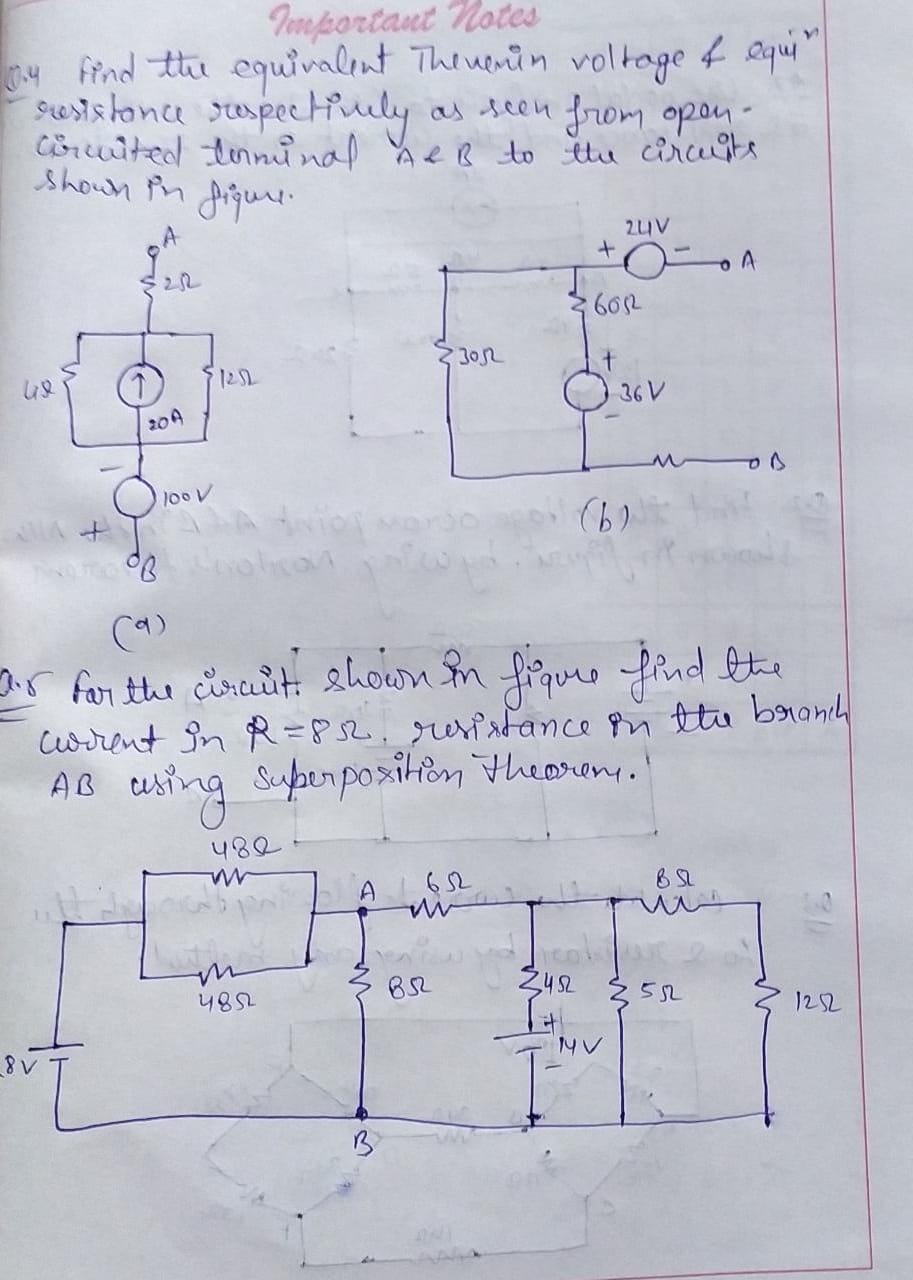 Important Notes
Q.4 Find the equivalent Thevenin voltage & equiⁿ
resistance respectively as seen from open-
circuited terminal A & B to the circuits
shown in figure.
A
2Ω
4Ω
20A
12Ω
-
100V
+
B
(a)
24V
+ - A
60Ω
30Ω
+
36V
-
B
(b)
Q.5 For the circuit shown in figure find the
current in R=8Ω. resistance in the branch
AB using superposition theorem.
48Ω
48Ω
A
6Ω
8Ω
8Ω
4Ω
5Ω
12Ω
+
14V
-
8V
B